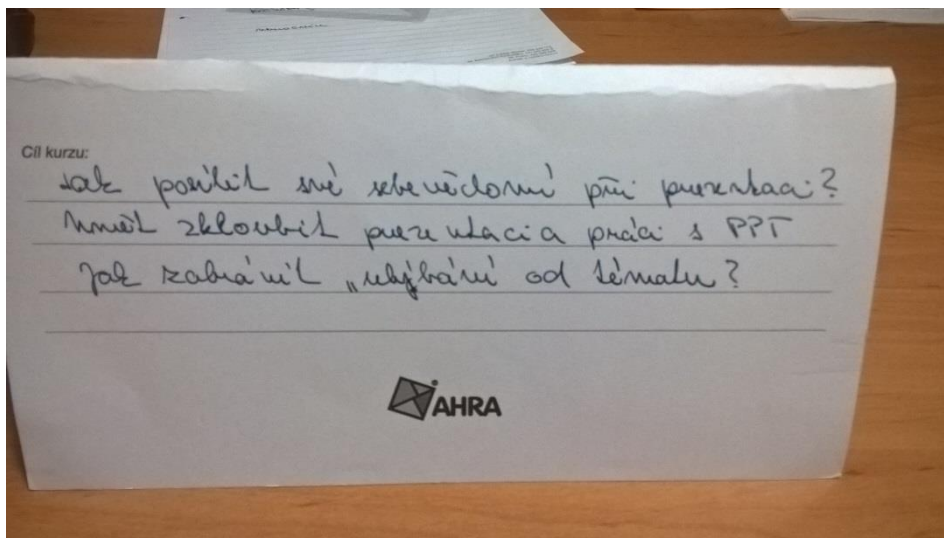 Cíl kurzu:
Jak posílit své sebevědomí při prezentaci?
Umět skloubit prezentaci a práci s PPT
Jak zabránit „uhýbání od tématu?
AHRA